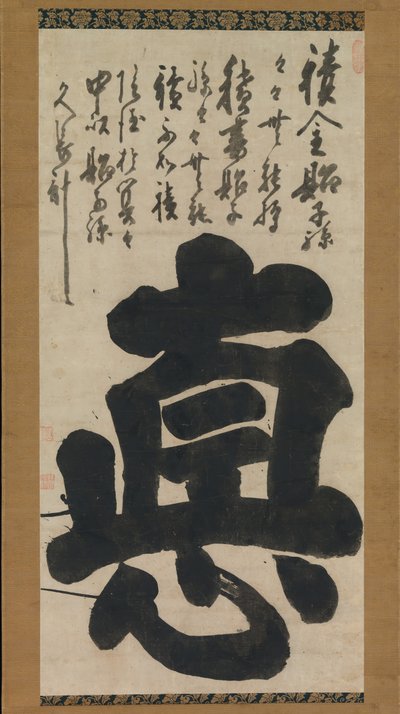 積金貽子孫
々々無能
積書貽子
孫々々無能
讀不如積
陰徳於冥々
中以貽孫
久長計
悳